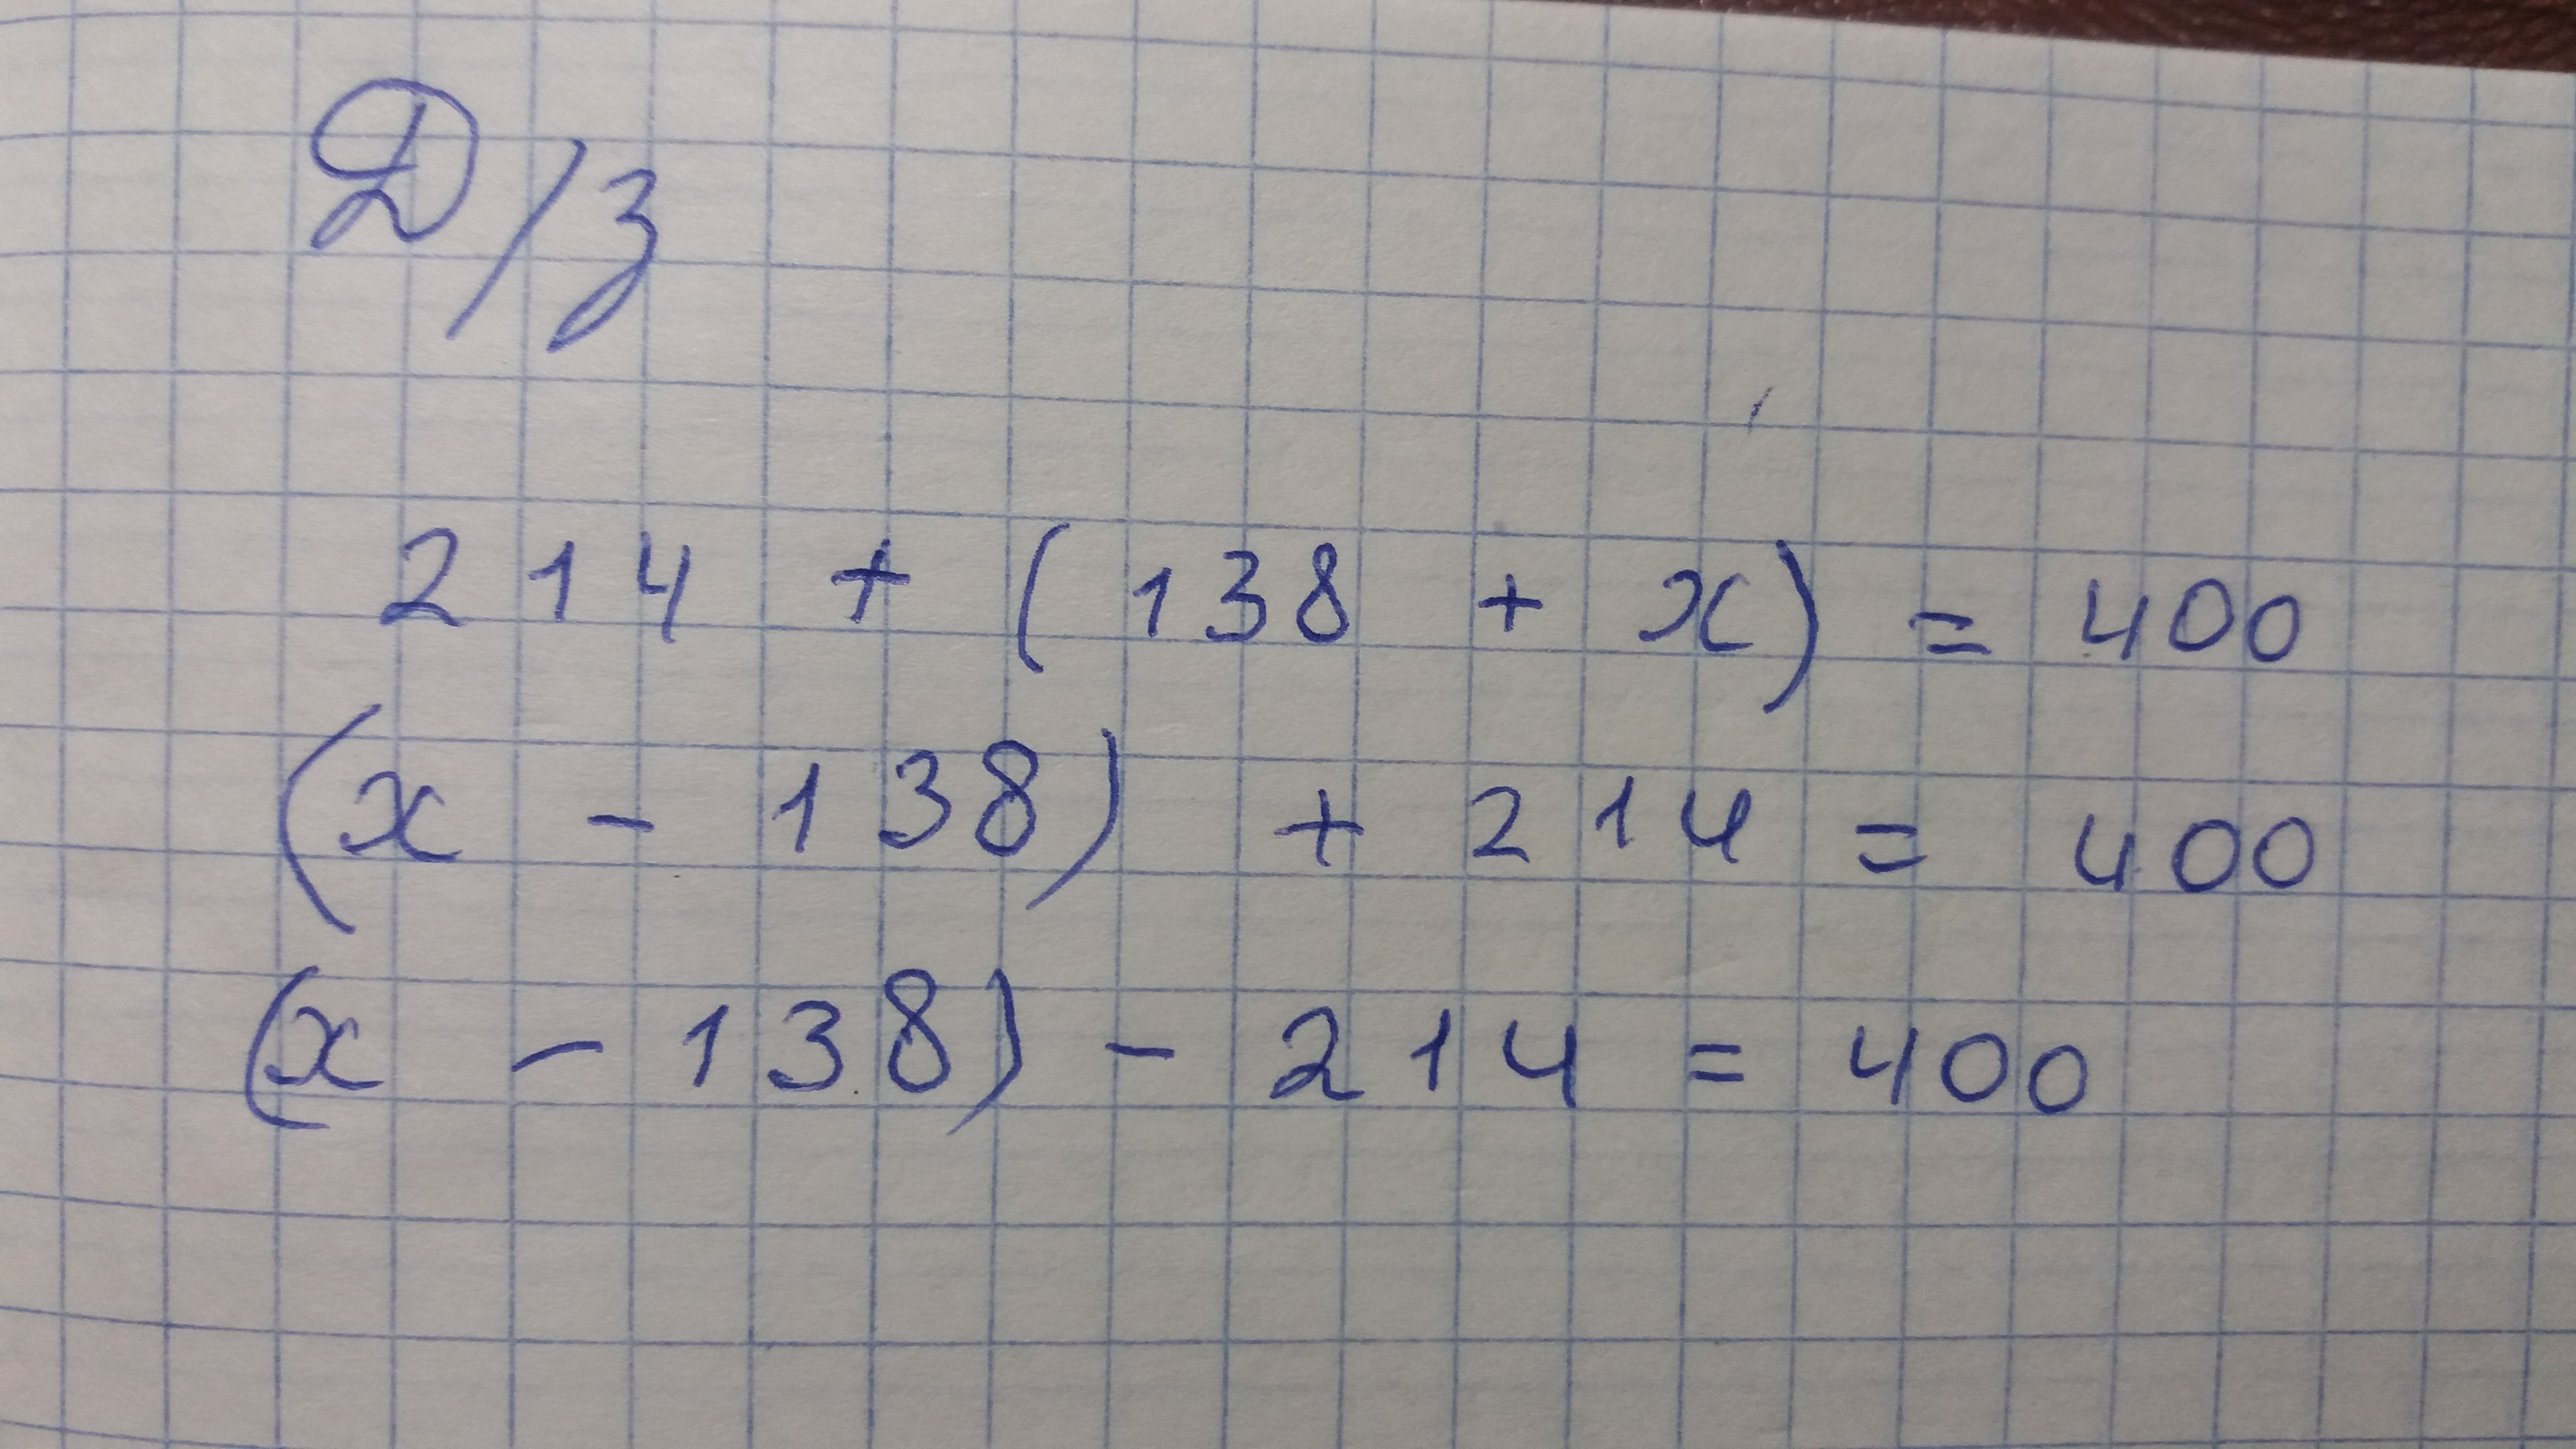 Д/з
214 + (138 + x) = 400
(x - 138) + 214 = 400
(x - 138) - 214 = 400